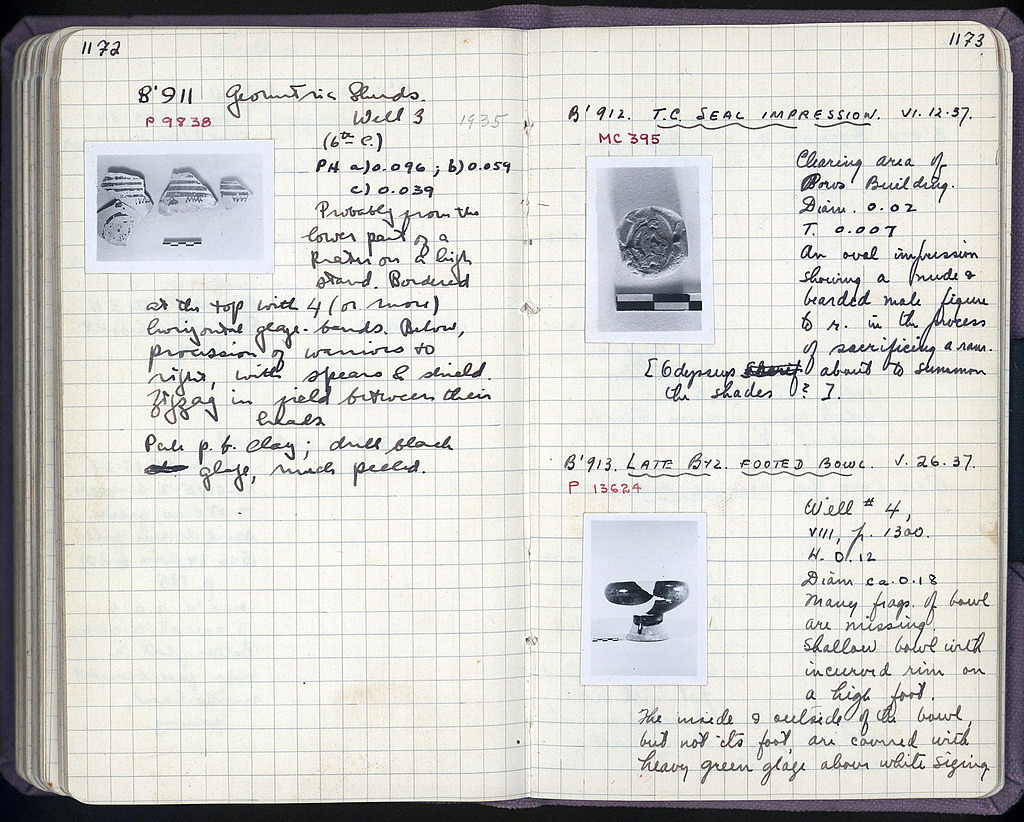 1172
B'911 Geometric Sherds.
P 9838
Well 3 1935
(6th C.)
PH a) 0.096 ; b) 0.059
c) 0.039
Probably from the
lower part of a
krater on a high
stand. Bordered
at the top with 4 (or more)
horizontal glaze-bands. Below,
procession of warriors to
right, with spears & shield.
Zigzag in field between their
heads
Pale p. b. clay; dull black
glaze, much peeled.
1173
B'912. T.C. SEAL IMPRESSION. VI.12.37.
MC 395
Clearing area of
Poros Building.
Diam. 0.02
T. 0.007
An oval impression
showing a nude &
bearded male figure
to r. in the process
of sacrificing a ram.
[Odysseus about to summon
the shades ? ].
B'913. LATE BYZ. FOOTED BOWL. V.26.37.
P 13624
Well # 4,
VIII, p. 1300.
H. 0.12
Diam ca. 0.18
Many frags. of bowl
are missing.
Shallow bowl with
incurved rim on
a high foot.
The inside & outside of the bowl,
but not its foot, are covered with
heavy green glaze above white sizing